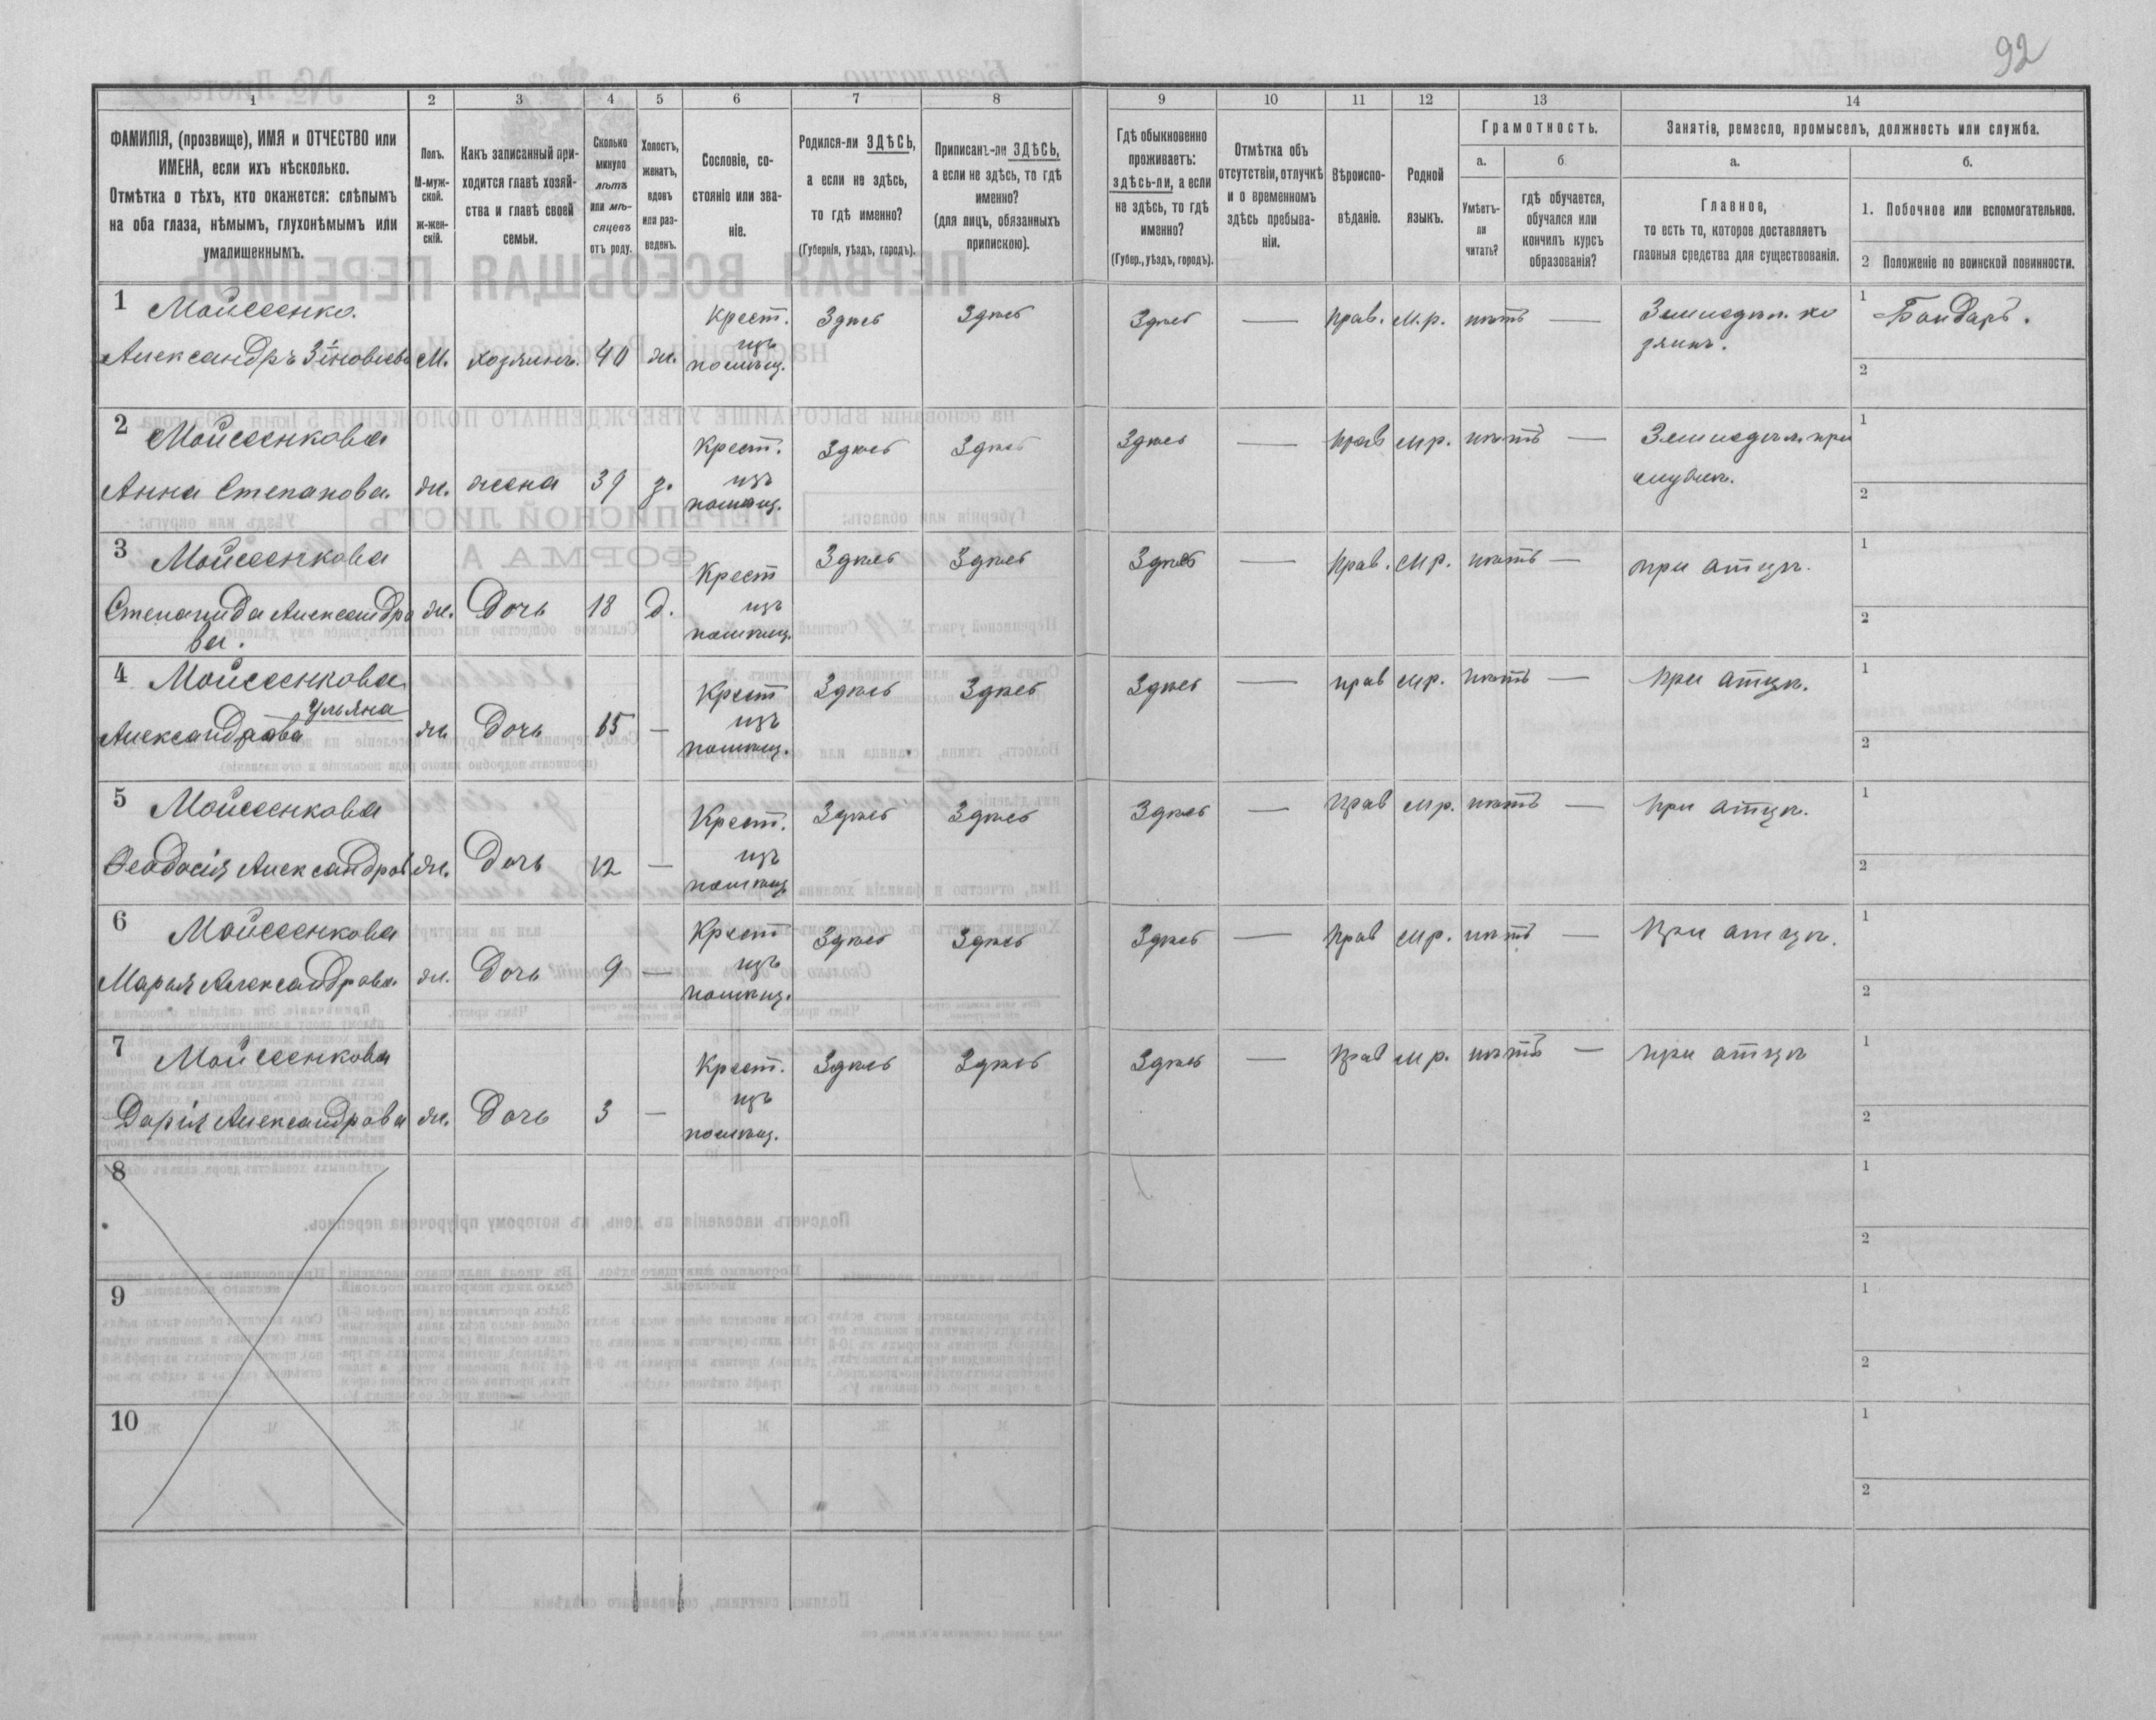 92
1 2 3 4 5 6 7 8 9 10 11 12 13 14
ФАМИЛІЯ, (прозвище), ИМЯ и ОТЧЕСТВО или
ИМЕНА, если ихъ нѣсколько.
Отмѣтка о тѣхъ, кто окажется: слѣпымъ
на оба глаза, нѣмымъ, глухонѣмымъ или
умалишеннымъ.
Полъ.
М-муж-
ской.
Ж-жен-
скій.
Какъ записанный при-
ходится главѣ хозяй-
ства и главѣ своей
семьи.
Сколько
минуло
лѣтъ
или мѣ-
сяцевъ
отъ роду.
Холостъ,
женатъ,
вдовъ
или раз-
веденъ.
Сословіе, со-
стояніе или зва-
ніе.
Родился-ли ЗДѢСЬ,
а если не здѣсь,
то гдѣ именно?
(Губернія, уѣздъ, городъ).
Приписанъ-ли ЗДѢСЬ,
а если не здѣсь, то гдѣ
именно?
(для лицъ, обязанныхъ
припискою).
Гдѣ обыкновенно
проживаетъ:
здѣсь-ли, а если
не здѣсь, то гдѣ
именно?
(Губер., уѣздъ, городъ).
Отмѣтка объ
отсутствіи, отлучкѣ
и о временномъ
здѣсь пребыва-
ніи.
Вѣроиспо-
вѣданіе.
Родной
языкъ.
Грамотность.
а. б.
Умѣетъ-
ли
читать?
гдѣ обучается,
обучался или
кончилъ курсъ
образованія?
Занятіе, ремесло, промыселъ, должность или служба.
а. б.
Главное,
то есть то, которое доставляетъ
главныя средства для существованія.
1. Побочное или вспомогательное.
2 Положеніе по воинской повинности.
1 Мойсеенко. Крест. Здѣсь Здѣсь Здѣсь — прав. м.р. нѣтъ — Земледѣл. хо 1 Бондарь.
Александръ Зіновіевъ М. хозяинъ. 40 ж. изъ помѣщ. зяинъ. 2
2 Мойсеенкова Крест. Здѣсь Здѣсь Здѣсь — прав мр. нѣтъ — Земледѣл. при 1
Анна Степанова. ж. жена 39 з. изъ помѣщ. 2
3 Мойсеенкова Крест Здѣсь Здѣсь Здѣсь — прав. мр. нѣтъ — при отцѣ. 1
Степанида Александро ж. Дочь 18 д. изъ помѣщ. 2
ва.
4 Мойсеенкова Крест Здѣсь Здѣсь Здѣсь — прав мр. нѣтъ — при отцѣ. 1
Ульяна
Александрова ж Дочь 15 — изъ помѣщ. 2
5 Мойсеенкова Крест. Здѣсь Здѣсь Здѣсь — прав мр. нѣтъ — при отцѣ. 1
Феодосія Александров ж. Дочь 12 — изъ помѣщ 2
6 Мойсеенкова Крест Здѣсь Здѣсь Здѣсь — прав мр. нѣтъ — при отцѣ. 1
Марья Александрова. ж. Дочь 9 — изъ помѣщ. 2
7 Мойсеенкова Крест. Здѣсь Здѣсь Здѣсь — прав мр. нѣтъ — при отцѣ 1
Дарія Александрова ж. Дочь 3 — изъ помѣщ. 2
8 1
2
9 1
2
10 1
2